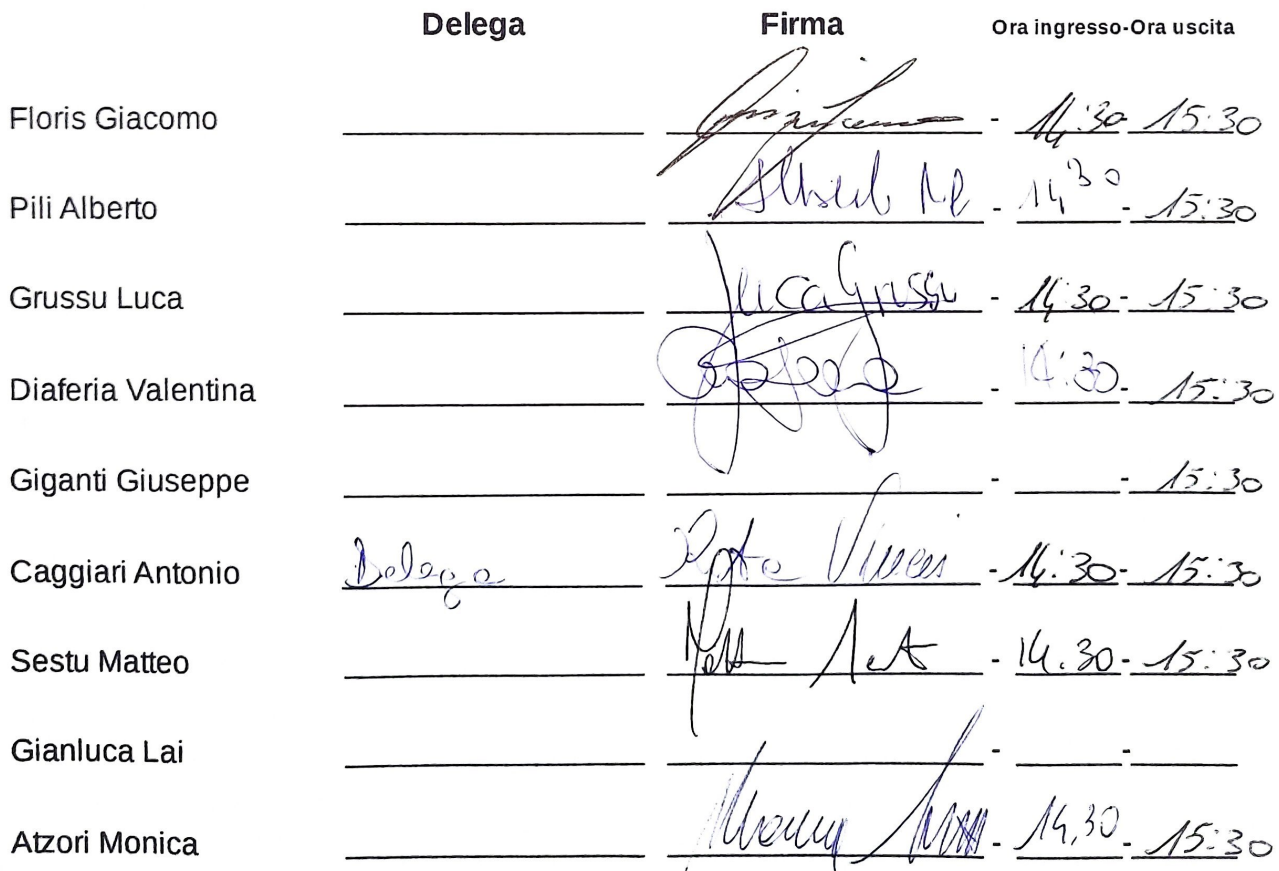 Delega Firma Ora ingresso-Ora uscita
Floris Giacomo - 14:30 - 15:30
Pili Alberto - 14 30 - 15:30
Grussu Luca Luca Grussu - 14:30 - 15:30
Diaferia Valentina - 14:30 - 15:30
Giganti Giuseppe - - 15:30
Caggiari Antonio Delega Vinceis - 14:30 - 15:30
Sestu Matteo - 14.30 - 15:30
Gianluca Lai - -
Atzori Monica - 14,30 - 15:30